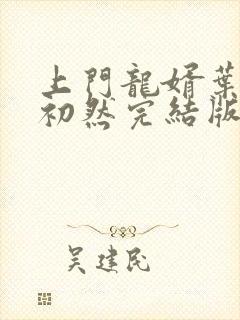 上門龍婿葉
初然完結版
吴建民